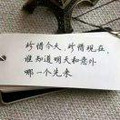 珍惜今天、珍惜现在,
谁知道明天和意外
哪一个先来